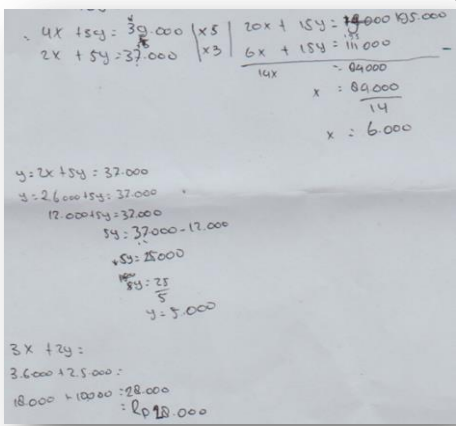 4x + 3y = 39.000 | x5 | 20x + 15y = 195.000
2x + 5y = 37.000 | x3 | 6x + 15y = 111.000 -
14x = 84.000
x = 84.000
14
x = 6.000
y = 2x + 5y = 37.000
y = 2.6000 + 5y = 37.000
12.000 + 5y = 37.000
5y = 37.000 - 12.000
5y = 25000
y = 25
5
y = 5.000
3x + 2y =
3.6000 + 2.5.000 =
18.000 + 10.000 = 28.000
= Rp 28.000